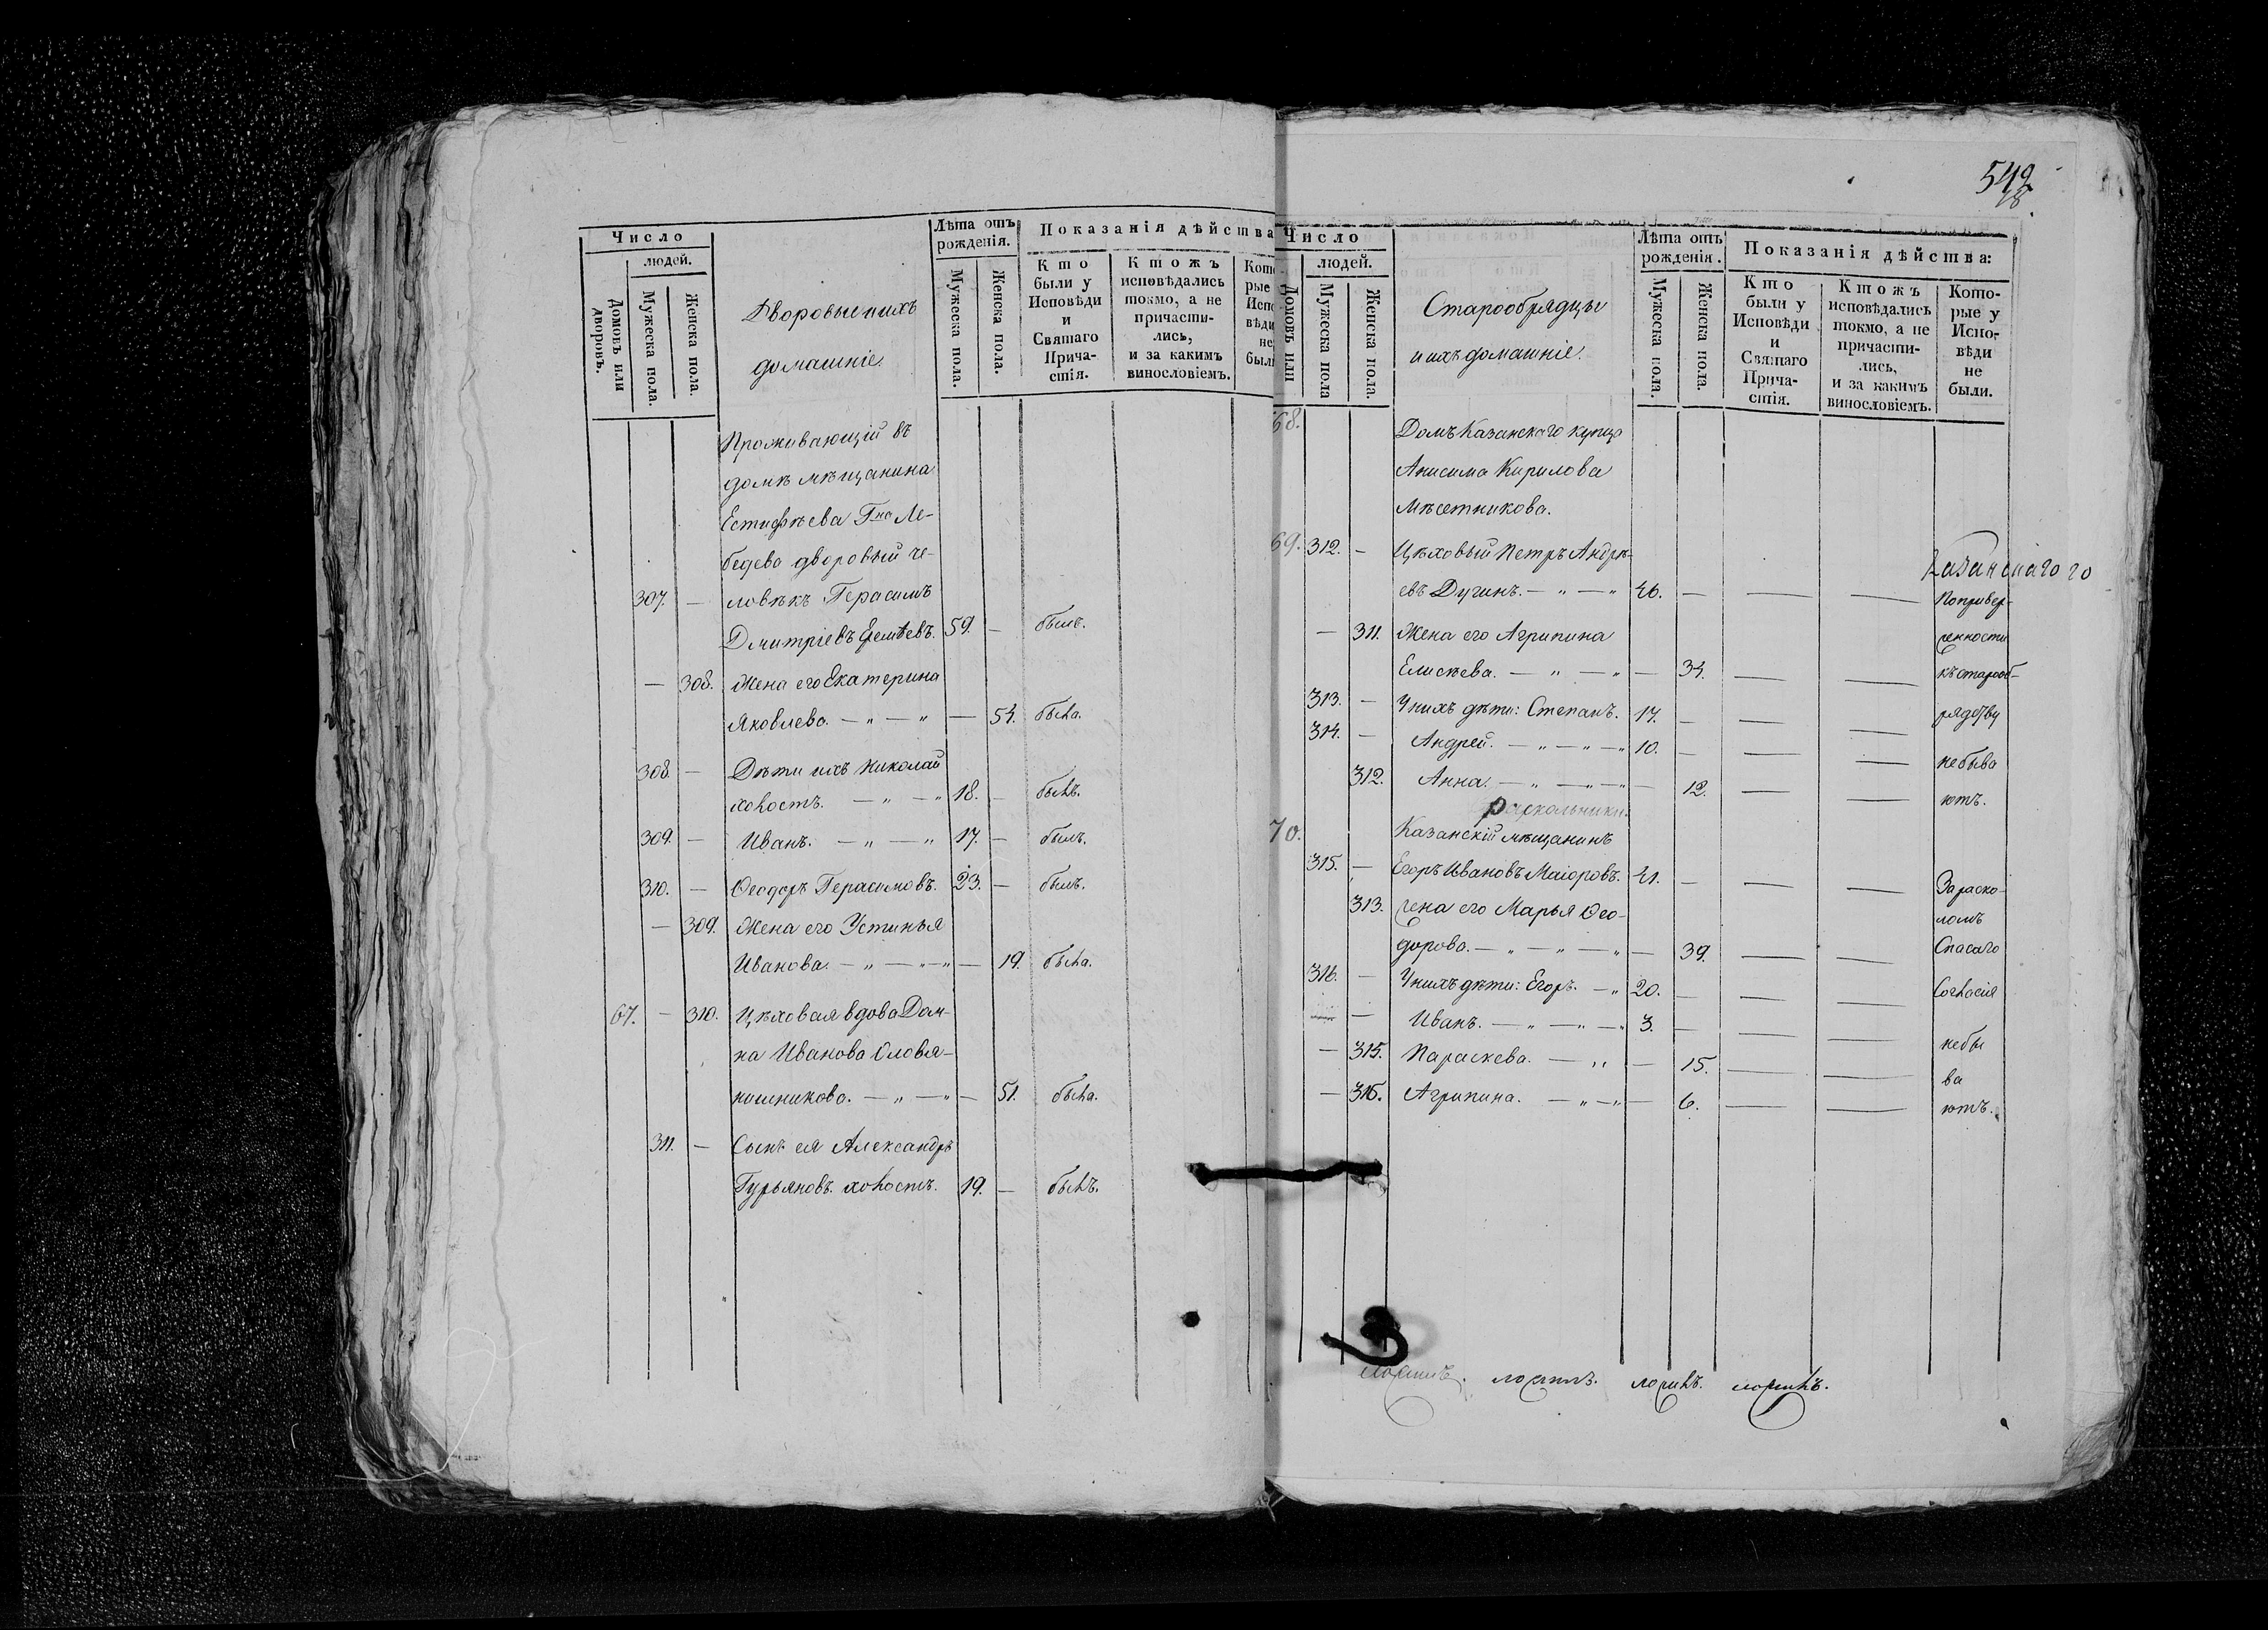 Число
людей.
Домовъ или дворовъ.
Мужеска пола.
Женска пола.
Дворовые и ихъ
домашніе.
Лѣта отъ рожденія.
Мужеска пола.
Женска пола.
Показанія дѣйства
Кто были у Исповѣди и Святаго Причастія.
Ктожъ исповѣдались токмо, а не причастились, и за какимъ винословіемъ.
Кото рые Испо вѣди не были
Проживающій въ
домѣ мѣщанина
Естифѣева Гна Ле-
бедева дворовый че-
307. — ловѣкъ Герасимъ
Дмитріевъ 59. — былъ.
— 308. Жена его Екатерина
Яковлева. — „ — „ — 54. была.
308. — Дѣти ихъ Николай
холостъ. — „ — „ 18. — былъ.
309. — Иванъ. — „ — „ 17. — былъ.
310. — Ѳеодоръ Герасимовъ. 23. — былъ.
— 309. Жена его Устинья
Иванова. — „ — „ — „ — 19. была.
67. — 310. Цѣховая вдова Дом-
на Иванова Словя-
нишникова. — „ — „ — 51. была.
311. — Сынъ ея Александръ
Гурьяновъ холостъ. 19. — былъ.
549
Число
людей.
Домовъ или
Мужеска пола
Женска пола.
Старообрядцы
и ихъ домашніе.
Лѣта отъ рожденія.
Мужеска пола.
Женска пола.
Показанія дѣйства:
Кто были у Исповѣди и Святаго Причастія.
Ктожъ исповѣдались токмо, а не причастились, и за какимъ винословіемъ.
Кото- рые у Испо- вѣди не были.
68. Домъ Казанскаго купца
Анисима Кирилова
Мѣсетникова.
69. 312. — Цѣховый Петръ Андрѣ-
евъ Дугинъ. — „ — „ 46. — — —
— 311. Жена его Агрипина
Елисѣева. — „ — „ — 34. — —
313. — У нихъ дѣти: Степанъ. 17. — — —
314. — Андрей. — „ — „ — „ 10. — — —
312. Анна. — „ — „ — „ — 12. — —
раскольники.
70. Казанскій мѣщанинъ
315. — Егоръ Ивановъ Маіоровъ. 41. — — —
313. жена его Марья Ѳео-
дорова. — „ — „ — „ — 39. — —
316. — У нихъ дѣти: Егоръ. — „ 20. — — —
— Иванъ. — „ — „ — „ 3. — — —
— 315. Параскева. — „ — 15. — —
— 316. Агрипина. — „ — „ — 6. — —
Попривер-
женности
къ старооб-
рядству
небыва
ютъ.
За раско-
ломъ
Спасаго
Согласія
небы
ва
ютъ.